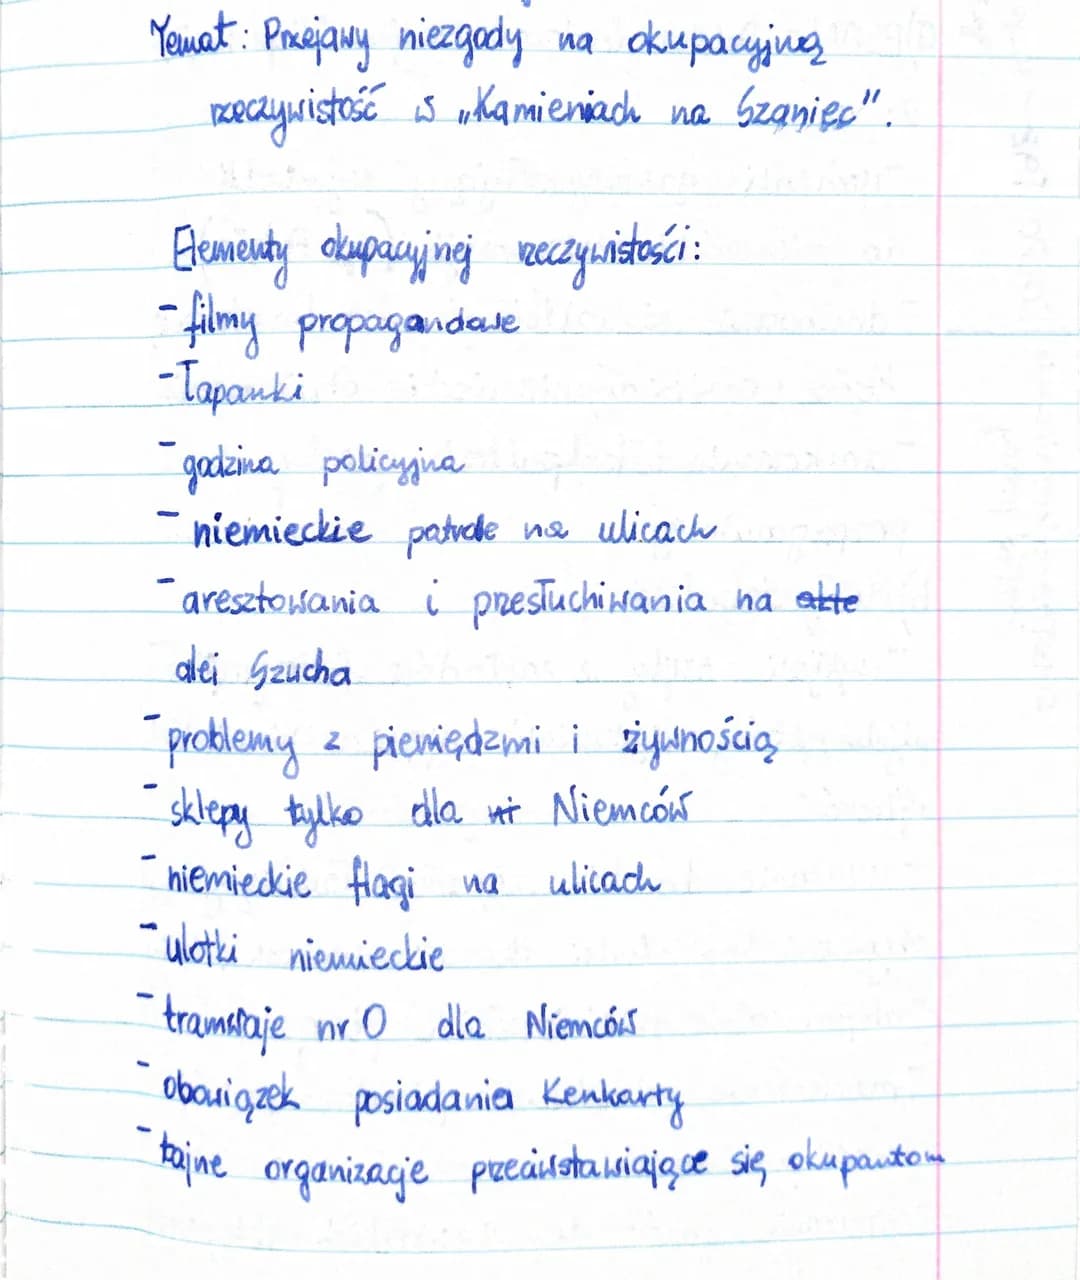 Temat: Przejawy niezgody na okupacyjną
rzeczywistość w „Kamieniach na Szaniec".
Elementy okupacyjnej rzeczywistości:
- filmy propagandowe
- Łapanki
- godzina policyjna
- niemieckie patrole na ulicach
- aresztowania i przesłuchiwania na alte
alei Szucha
- problemy z pieniędzmi i żywnością
- sklepy tylko dla ni Niemców
- niemieckie flagi na ulicach
- ulotki niemieckie
- tramwaje nr 0 dla Niemców
- obowiązek posiadania Kenkarty
- tajne organizacje przeciwstawiające się okupantom